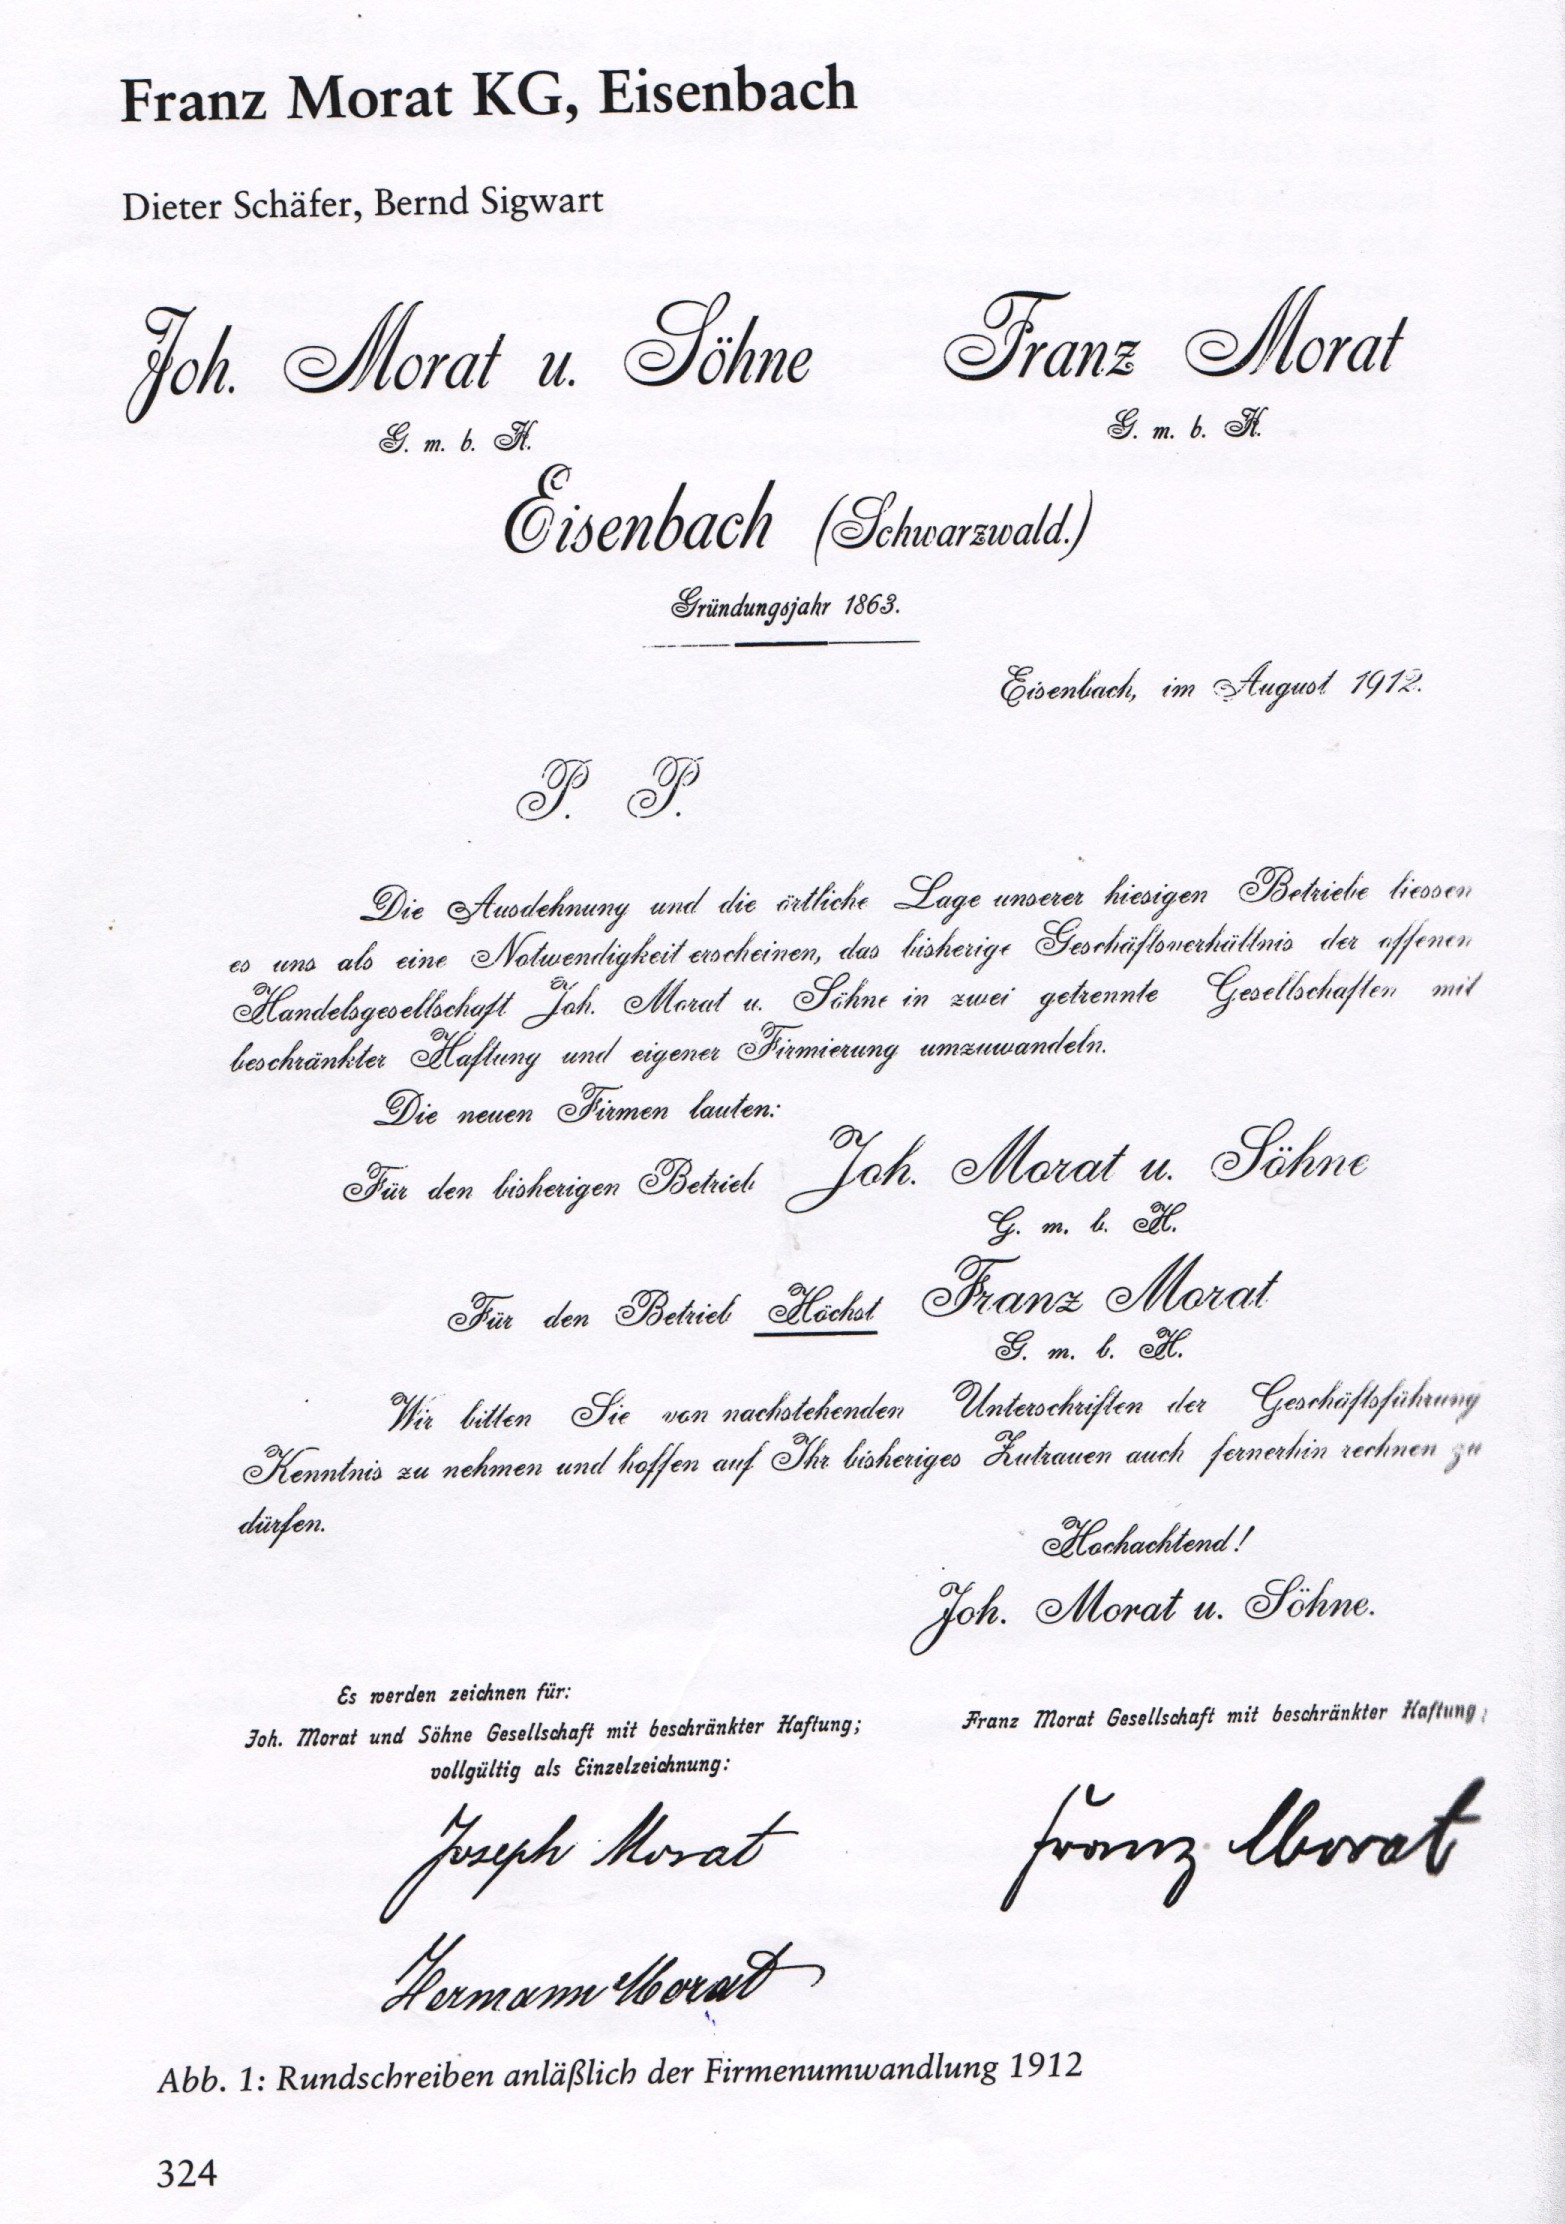 Franz Morat KG, Eisenbach
Dieter Schäfer, Bernd Sigwart
Joh. Morat u. Söhne Franz Morat
G. m. b. H. G. m. b. H.
Eisenbach (Schwarzwald.)
Gründungsjahr 1863.
Eisenbach, im August 1912.
P. P.
Die Ausdehnung und die örtliche Lage unserer hiesigen Betriebe liessen
es uns als eine Notwendigkeit erscheinen, das bisherige Geschäftsverhältnis der offenen
Handelsgesellschaft Joh. Morat u. Söhne in zwei getrennte Gesellschaften mit
beschränkter Haftung und eigener Firmierung umzuwandeln.
Die neuen Firmen lauten:
Für den bisherigen Betrieb Joh. Morat u. Söhne
G. m. b. H.
Für den Betrieb Höchst Franz Morat
G. m. b. H.
Wir bitten Sie von nachstehenden Unterschriften der Geschäftsführung
Kenntnis zu nehmen und hoffen auf Ihr bisheriges Zutrauen auch fernerhin rechnen zu
dürfen.
Hochachtend!
Joh. Morat u. Söhne.
Es werden zeichnen für:
Joh. Morat und Söhne Gesellschaft mit beschränkter Haftung; Franz Morat Gesellschaft mit beschränkter Haftung;
vollgültig als Einzelzeichnung:
Joseph Morat Franz Morat
Hermann Morat
Abb. 1: Rundschreiben anläßlich der Firmenumwandlung 1912
324